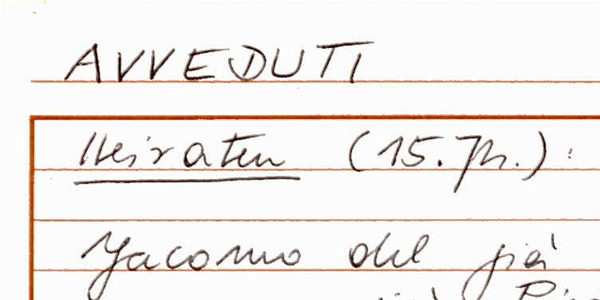 AVVEDUTI
Heiraten (15. Jh.) :
Jacomo del già
già